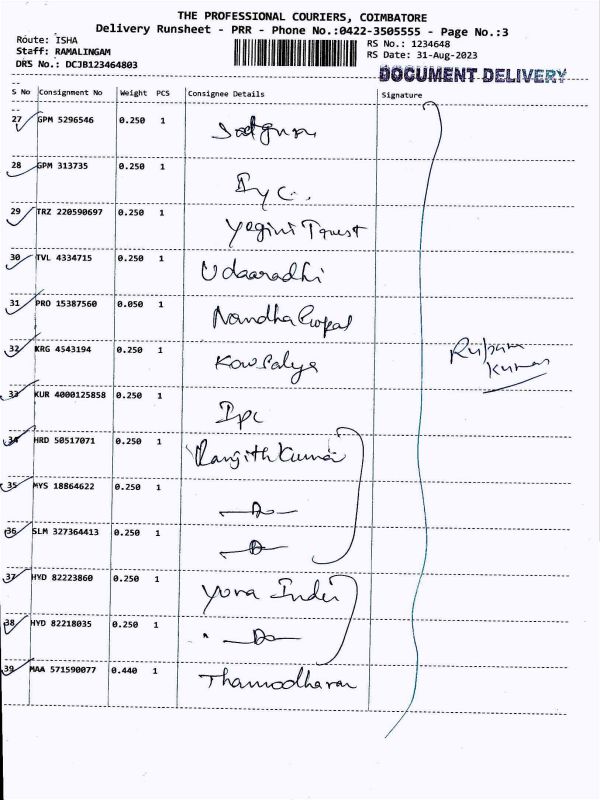 THE PROFESSIONAL COURIERS, COIMBATORE
Delivery Runsheet - PRR - Phone No.:0422-3505555 - Page No.:3
Route: ISHA
Staff: RAMALINGAM
DRS No.: DCJB123464803
RS No.: 1234648
RS Date: 31-Aug-2023
DOCUMENT DELIVERY
S No Consignment No Weight PCS Consignee Details Signature
27 GPM 5296546 0.250 1
28 GPM 313735 0.250 1
29 TRZ 220590697 0.250 1 Yogini
30 TVL 4334715 0.250 1 Udaaradhi
31 PRO 15387560 0.050 1 Nandha Gopal
32 KRG 4543194 0.250 1 Kowsalya
33 KUR 4000125858 0.250 1 Ipc
34 HRD 50517071 0.250 1 Ranjith Kumar
35 MYS 18864622 0.250 1 -Do-
36 SLM 327364413 0.250 1
37 HYD 82223860 0.250 1
38 HYD 82218035 0.250 1 -Do-
39 MAA 571590077 0.440 1 Thamodharan
Kumar